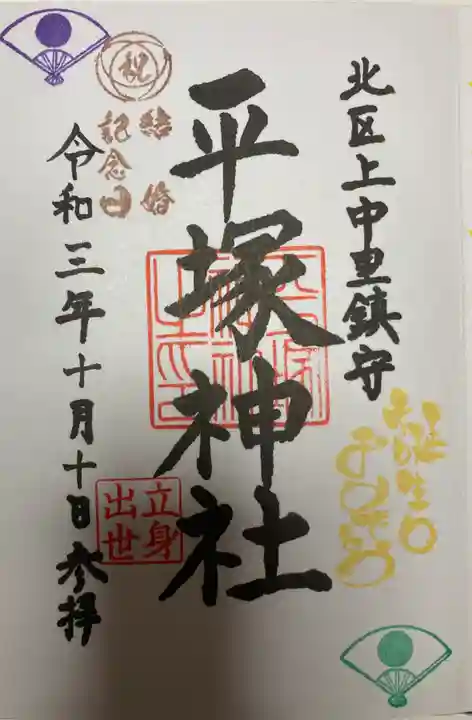 北区上中里鎮守
お誕生日
おめでとう
平塚神社
立身
出世
祝
結婚
記念日
令和三年十月十日参拝